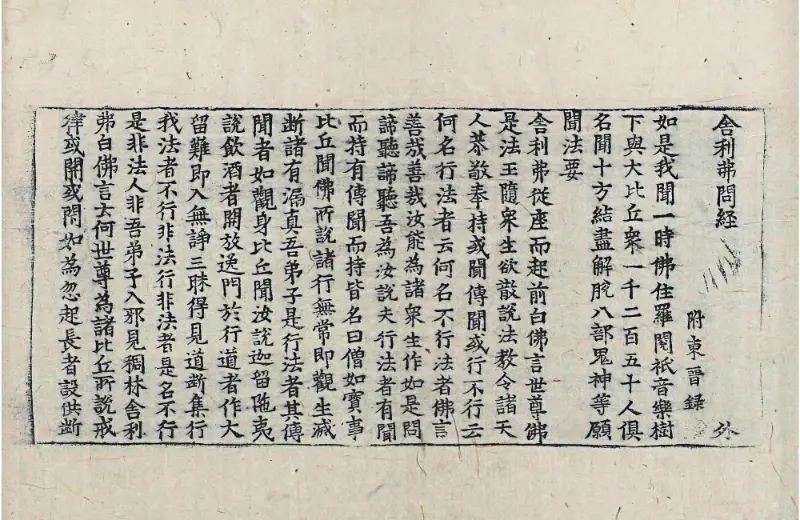 舍利弗問経 外
附東晋録
如是我聞一時佛住羅閱祇音樂樹
下與大比丘衆一千二百五十人俱
名聞十方結盡解脫八部鬼神等願
聞法要
舍利弗從座而起前白佛言世尊佛
是法王隨衆生欲散說法教令諸天
人恭敬奉持或聞傳聞或行不行云
何名行法者云何名不行法者佛言
善哉善哉汝能為諸衆生作如是問
諦聽諦聽吾為汝說夫行法者有聞
而持有傳聞而持皆名曰僧如寶事
比丘聞佛所說諸行無常即觀生滅
断諸有漏真吾弟子是行法者其傳
聞者如觀身比丘聞汝說迦留陁夷
說飲酒者開放逸門於行道者作大
留難即入無諍三昧得見道断集行
我法者不行非法行非法者是名不行
是非法人非吾弟子入邪見稠林舍利
弗白佛言云何世尊為諸比丘所說戒
律或開或問如為忽起長者設供断